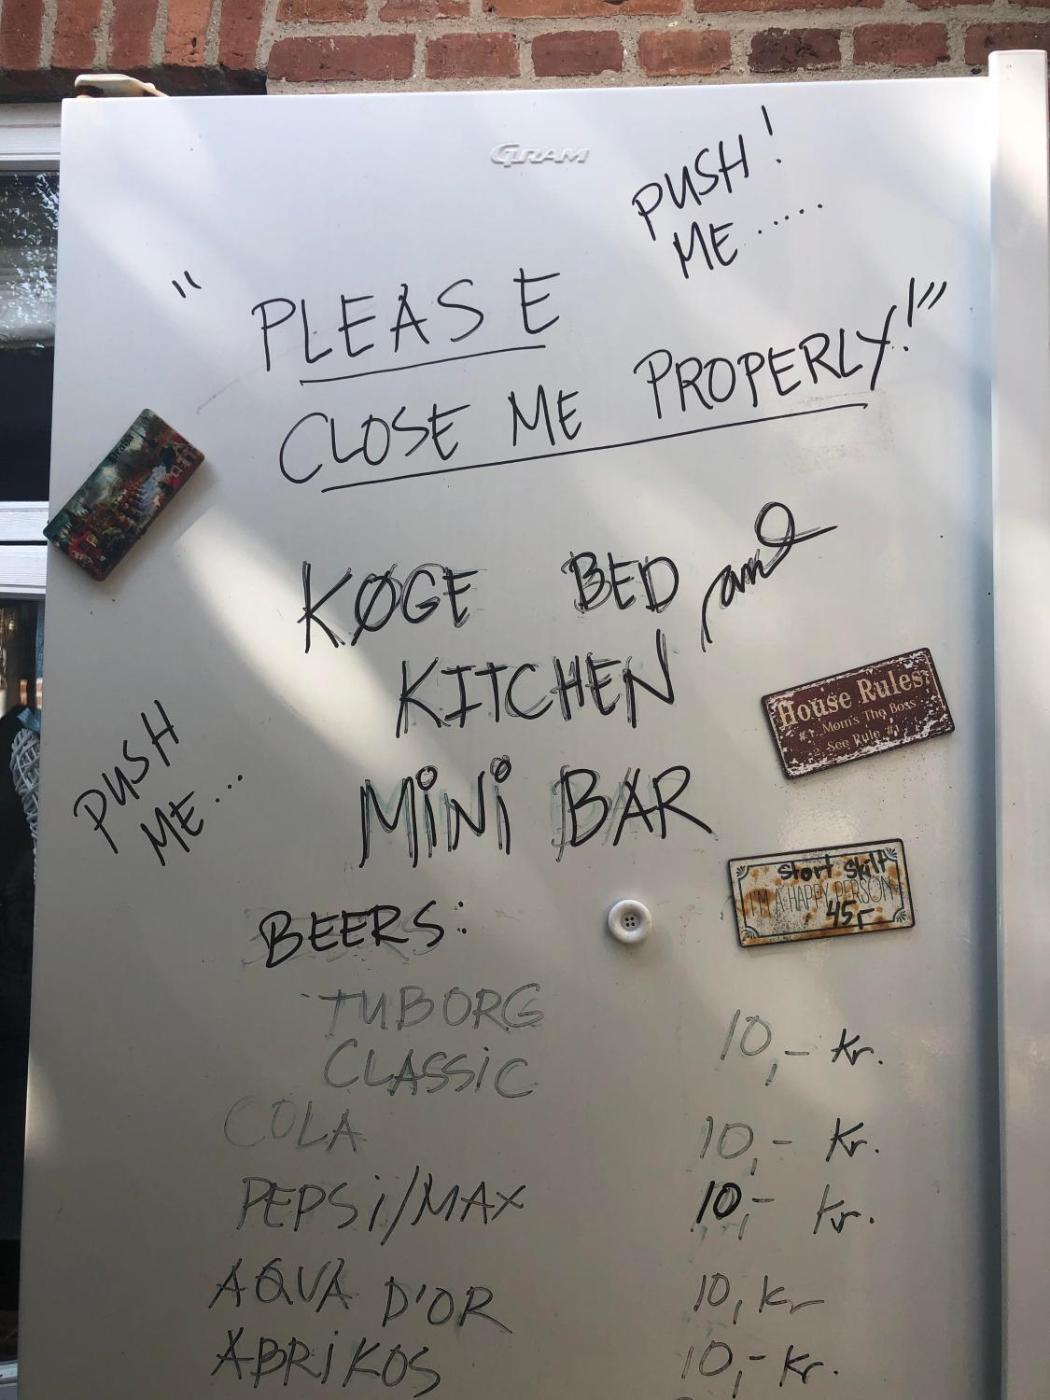 GRAM
PUSH!
ME.....
"PLEASE
CLOSE ME PROPERLY!"
KØGE BED and
KITCHEN
MiNi BAR
PUSH
ME...
House Rules
#1 Mom's The Boss
See Rule
Stort Skilt
I'M A HAPPY PERSON
45r
BEERS:
TUBORG
CLASSiC 10,- Kr.
COLA 10,- Kr.
PEPSi/MAX 10,- Kr.
AQVA D'OR 10, kr
ABRiKOS 10,- Kr.